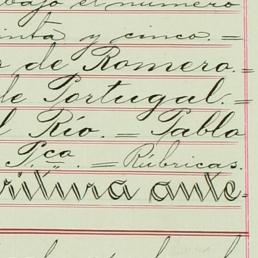 bajo el número
inta y cinco. =
r de Romero. =
de Portugal. =
l Río. = Pablo
P.co . = Rúbricas.
ritura ante-